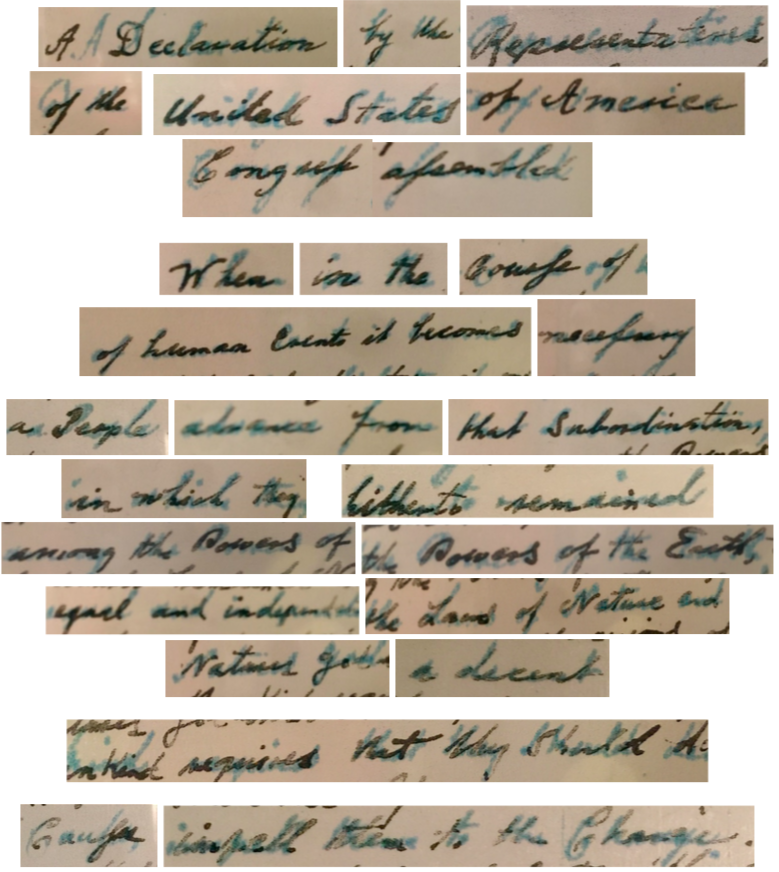 A A Declaration by the Representatives
of the United States of America
Congress assembled
When in the Course of
of human Events it becomes necessary
a People advance from that Subordination,
in which they hitherto remained
among the Powers of the Powers of the Earth,
equal and independent the Laws of Nature and
Natures God a decent
requires that they Should
Causes impell them to the Change.